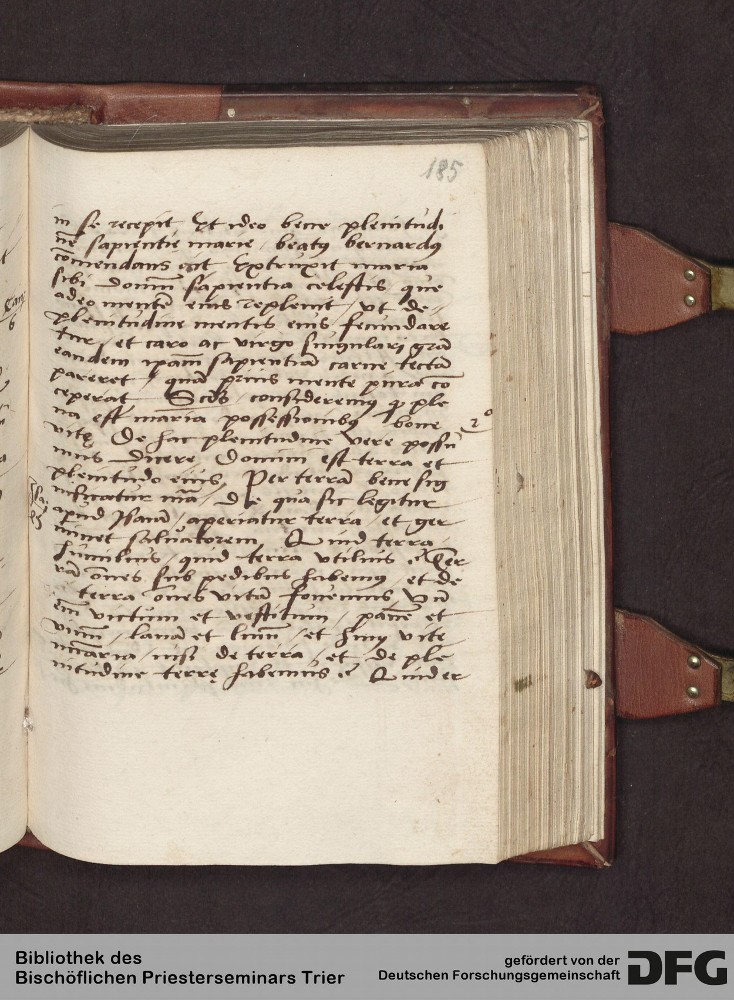 185
in se recepit Et ideo bene plenitudi
nē sapientie marie / beatꝰ bernardꝰ
cōmendans ait Extruxit maria
sibi domū sapientia celestis, que
adeo mentē eius replevit / ut de
plenitudine mentis eius / fecundare
tur / et caro ac virgo singulari grā
eandem ipam̄ sapientiā carne tectā
pareret / quā priꝰ mente pura cō
ceperat Scdo consideremꝰ ple
na est maria possessionibꝰ bone
2º
vitę De hac plenitudine vere possu
mus dicere Domini est terra et
plenitudo eius, Per terrā bene sig
nificatur mā / De qua sic legitur
apud Isaiā / aperiatur terra / et ger
minet salvatorem, Quid terra
humilius, quid terra utilius ? Ter
rā om̄es sub pedibus habemꝰ / et de
terra oēs vitā fovemus Vn̄
em̄ victum et vestitum / panē et
vinū / lanā et linū / et huiꝰ vite
n̄aria / nisi de terra / et de ple
nitudine terrę habemus ? Quid er
Bibliothek des
Bischöflichen Priesterseminars Trier
gefördert von der
Deutschen Forschungsgemeinschaft
DFG